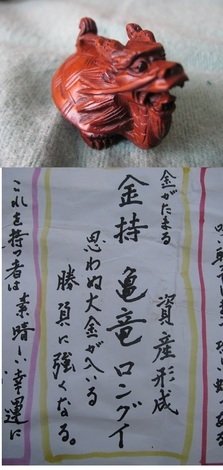 金がたまる
資産形成
金持 亀竜 ロングイ
思わぬ大金が入る
勝負に強くなる。
これを持つ者は 素晴しい幸運に